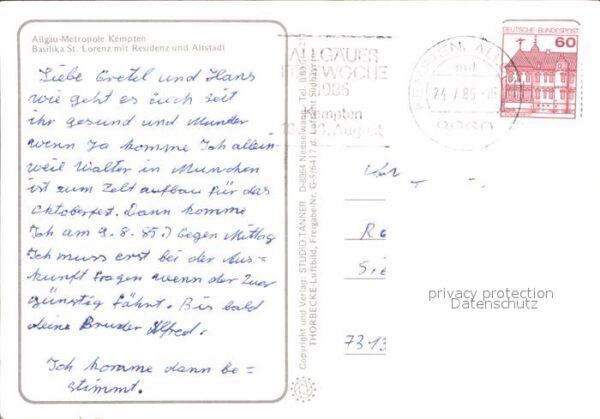 Allgäu-Metropole Kempten
Basilika St. Lorenz mit Residenz und Altstadt
Liebe Gretel und Hans
wie geht es euch seit
ihr gesund und Munder
wenn Ja komme Ich allein
weil Walter in Munchen
ist zum Zelt aufbau für das
Oktoberfest. Dann komme
Ich am 9.8.85.) Gegen Mittag
Ich muss erst bei der Aus=
kunft fragen wenn der Zug
günstig fährt. Bis bald
deine Bruder Alfred.
Ich komme dann be=
stimmt.
Copyright und Verlag: STUDIO TANNER D-8964 Nesselwang, Tel.
THORBECKE-Luftbild, Freigabe-Nr. G-5/6417 d. Luftamt Südbayern
ALLGÄUER
FESTWOCHE
1985
Kempten
August
KEMPTEN, ALLG
md
24.7.85
8960
DEUTSCHE BUNDESPOST
60
Re
Sie
7313
privacy protection
Datenschutz